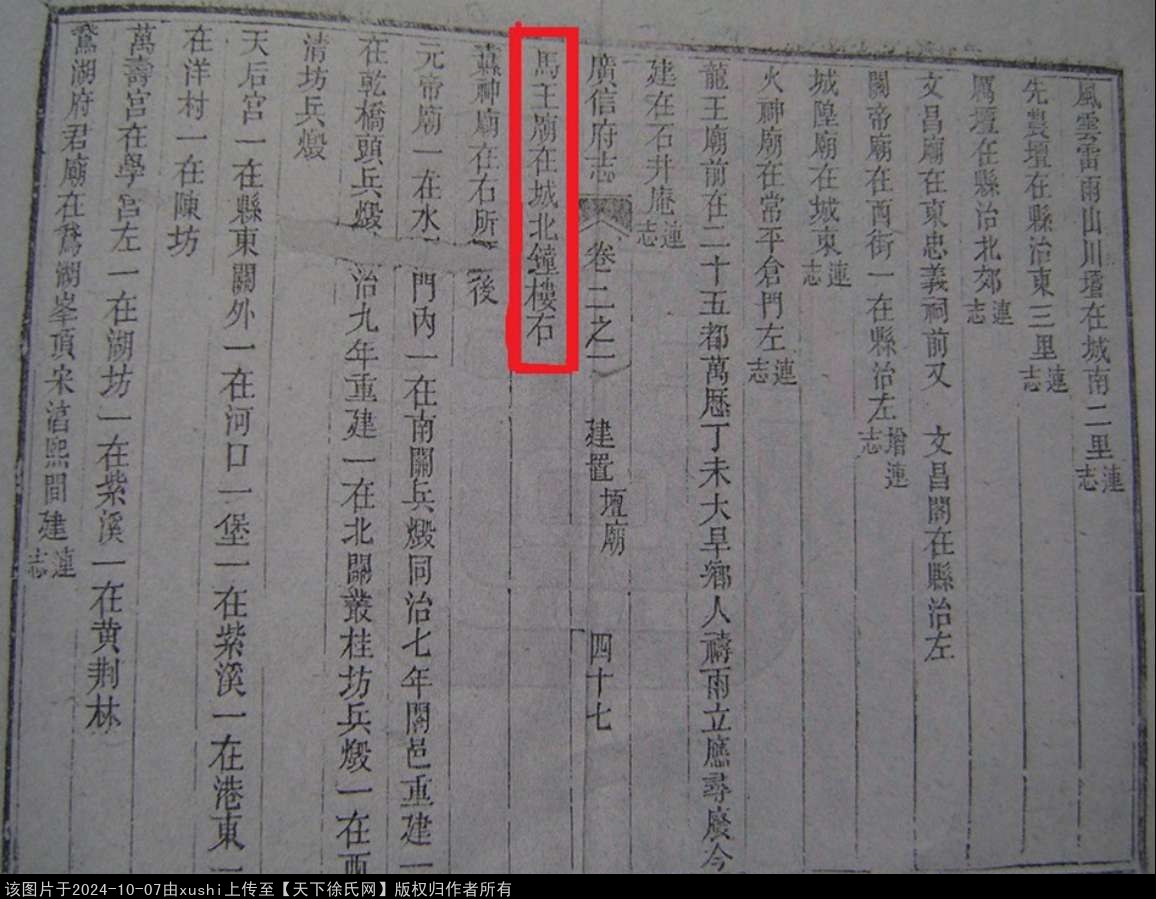 風雲雷雨山川壇在城南二里連志
先農壇在縣治東三里連志
厲壇在縣治北郊連志
文昌廟在東忠義祠前又 文昌閣在縣治左
關帝廟在西街一在縣治左增連志
城隍廟在城東連志
火神廟在常平倉門左連志
龍王廟前在二十五都萬厯丁未大旱鄉人禱雨立應尋廢今
建在石井庵連志
廣信府志 卷二之一 建置 壇廟 四十七
馬王廟在城北鐘樓石
神廟在右所後
元帝廟一在水 門內一在南關兵燬同治七年闔邑重建一
在乾橋頭兵燬 治九年重建一在北關叢桂坊兵燬一在西
清坊兵燬
天后宮一在縣東關外一在河口一堡一在紫溪一在港東一
在洋村一在陳坊
萬壽宮在學宮左一在湖坊一在紫溪一在黃荆林
鵞湖府君廟在鵞湖峯頂宋淳熙間建連志
该图片于2024-10-07由xushi上传至【天下徐氏网】版权归作者所有